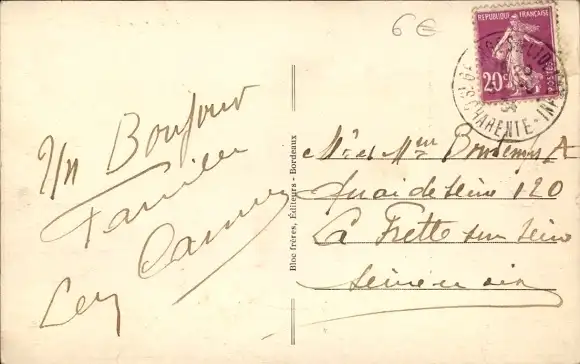 6 €
REPUBLIQUE FRANÇAISE
POSTES
20c
34
CHARENTE-INF
Un Bonjour
Familier
Bloc frères, Éditeurs - Bordeaux
Mr et Mme A
quai de seine 120
La Frette sur Seine
seine et oise